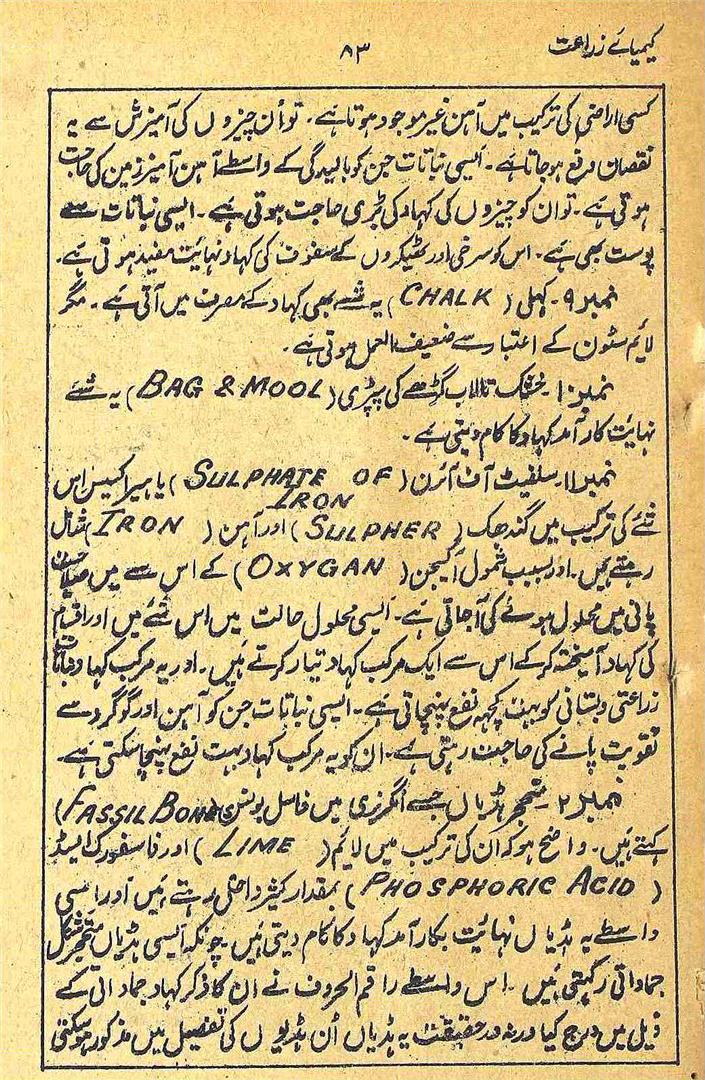 کیمیائے زراعت
۸۳
کسی اراضی کی ترکیب میں آہن غیر موجود ہوتا ہے۔ تو اُن چیزوں کی آمیزش سے یہ
نقصان رفع ہوجاتا ہے۔ ایسی نباتات جن کو بالیدگی کے واسطے آہن آمیز زمین کی حاجت
ہوتی ہے۔ تو ان کو چیزوں کی کہاد کی بڑی حاجت ہوتی ہے۔ ایسی نباتات سے
پوست بھی ہے۔ اس کو سرخی اور ٹھیکروں کے سفوف کی کہاد نہائیت مفید ہوتی ہے۔
نمبر ۹۔ کہلی (CHALK) یہ شے بھی کہاد کے مصرف میں آتی ہے۔ مگر
لائیم سٹون کے اعتبار سے ضعیف العمل ہوتی ہے۔
نمبر ۱۰۔ خشک تالاب گڑھے کی پپڑی (BAG & MOOL) یہ شے
نہایت کار آمد کہاد کا کام دیتی ہے۔
نمبر ۱۱۔ سلفیٹ آف آئرن (SULPHATE OF IRON) یا ہیرا کسیس اس
شے کی ترکیب میں گندھک (SULPHER) اور آہن (IRON) شامل
رہتے ہیں۔ اور بسبب شمول آکیجن (OXYGAN) کے اس سے میں
پانی میں محلول ہونے کی آجاتی ہے۔ ایسی محلول حالت میں اس شئے میں اور اقسام
کی کہاد آمیختہ کرکے اس سے ایک مرکب کہاد تیار کرتے ہیں۔ اور یہ مرکب کہاد نباتات
زراعتی و بستانی کو بہت کچہہ نفع پہنچاتی ہے۔ ایسی نباتات جن کو آہن اور گوگرد سے
تقویت پانے کی حاجت رہتی ہے۔ ان کو یہ مرکب کہاد بہت نفع پہنچا سکتی ہے۔
نمبر ۲۔ متحجر ہڈیاں جسے انگریزی میں فاسل بونس (FASSIL BONE)
کہتے ہیں۔ واضح ہو کہ ان کی ترکیب میں لائیم (LIME) اور فاسفورک ایسڈ
(PHOSPHORIC ACID) بمقدار کثیر داخل رہتے ہیں اور اسی
واسطے یہ ہڈیاں نہائیت بکار آمد کہاد کا کام دیتی ہیں چونکہ ایسی ہڈیاں متحجر شکل
جماداتی رکہتی ہیں۔ اس واسطے راقم الحروف نے ان کا ذکر کہاد جماداتی کے
ذیل میں درج کیا ورنہ در حقیقت یہ ہڈیاں اُن ہڈیوں کی تفصیل میں مذکور ہو سکتی